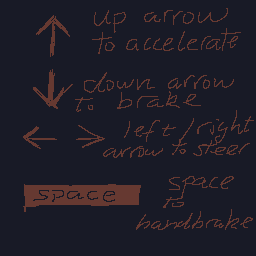 up arrow
to accelerate
down arrow
to brake
left / right
arrow to steer
space
space
to
handbrake